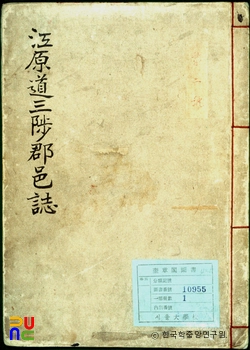 江原道三陟郡邑誌
奎章閣圖書
10955
1
서울大學
© 한국학중앙연구원